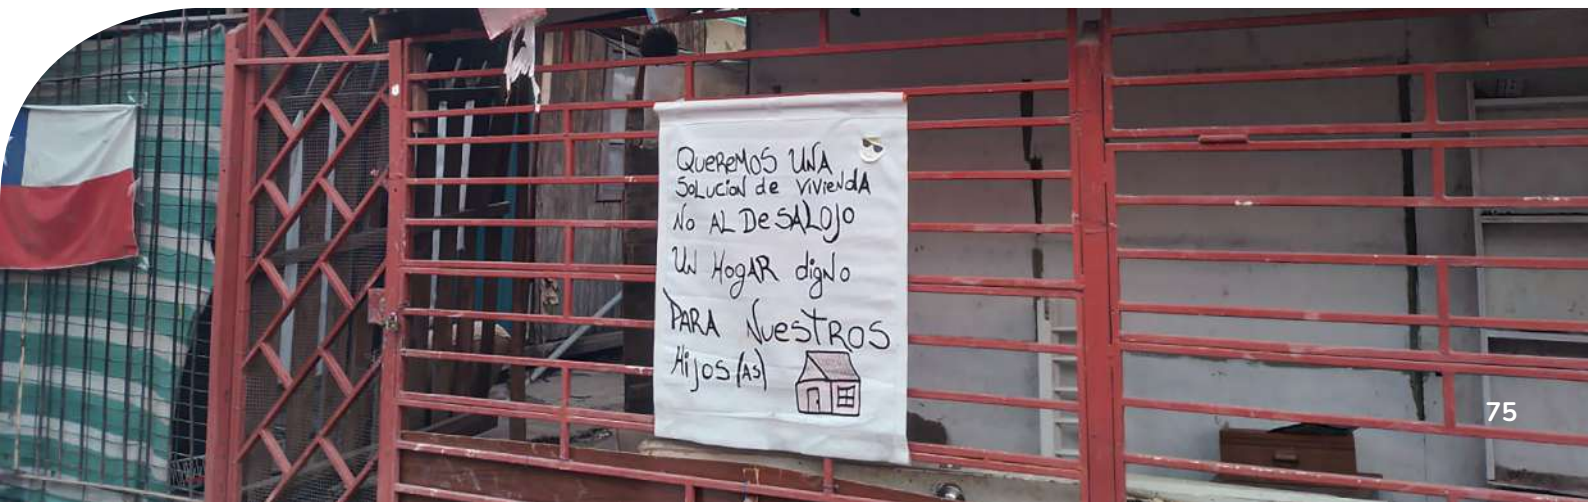 QUEREMOS UNA
SOLUCION de VIVIENDA
NO AL DESALOJO
UN HOGAR digNo
PARA NUESTROS
Hijos(AS)
75